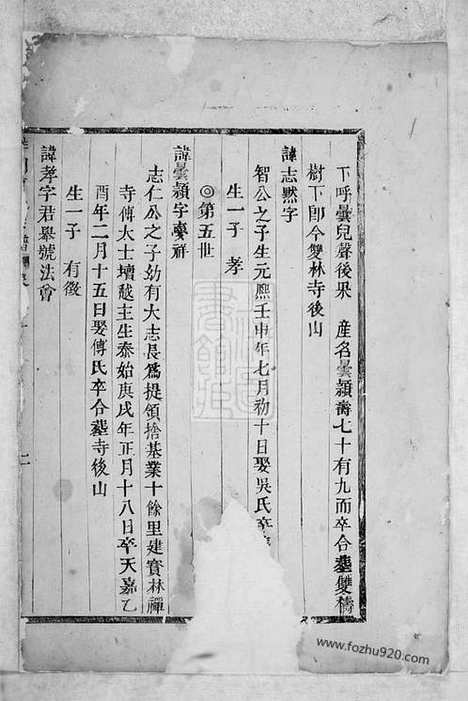 下呼曇兒聲後果　産名曇潁壽七十有九而卒合墓雙檮
樹下卽今雙林寺後山
諱志默字
智公之子生元熙壬申年七月初十日娶吳氏卒
生一子　孝
◎第五世
諱曇潁字慶祥
志仁公之子幼有大志長爲提領捨基業十餘里建寳林禪
寺傳大士壇越主生泰始庚戌年正月十八日卒天嘉乙
酉年二月十五日娶傅氏卒合墓寺後山
生一子　有徵
諱孝字君舉號法會
二
www.fozhu920.com